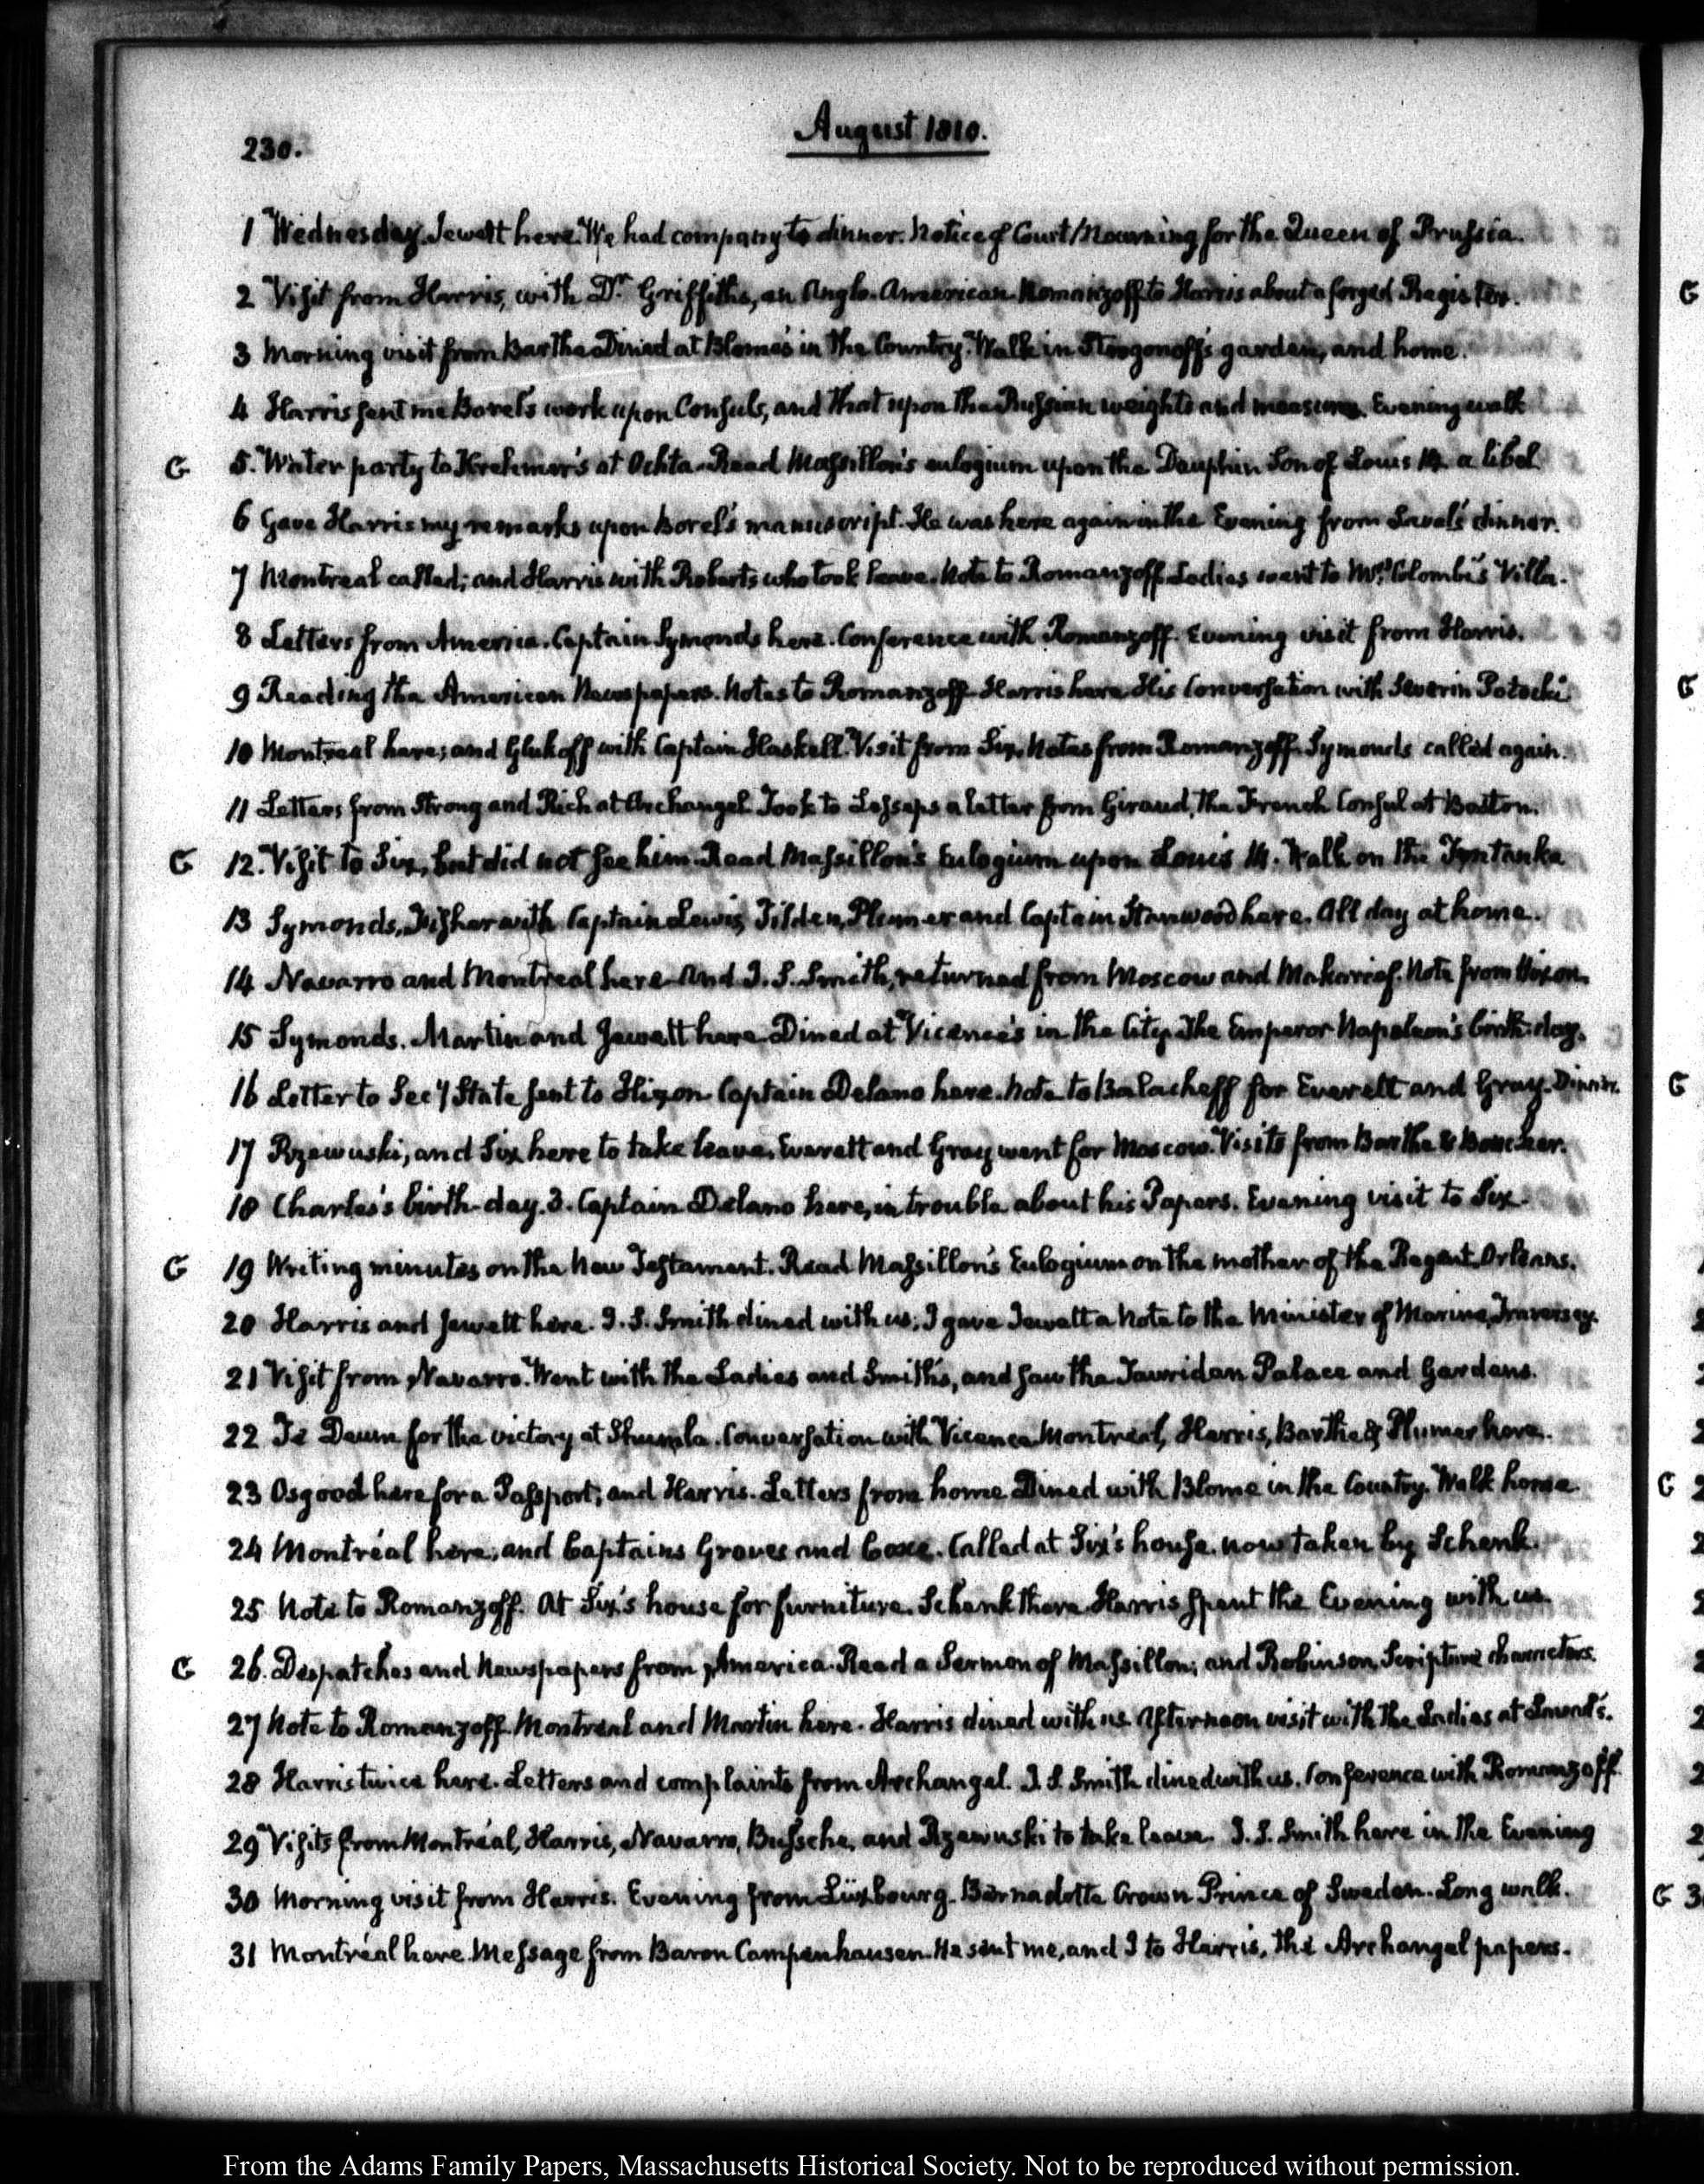 230.
August 1810.
1 Wednesday. Jewett here. We had company to dinner. Notice of Court Mourning for the Queen of Prussia.
2 Visit from Harris, with Dr. Griffiths, an Anglo-American. Romanzoff to Harris about a forged Register.
3 Morning visit from Barthe. Dined at Blome's in the Country. Walk in Strogonoff's garden, and home.
4 Harris sent me Borel's work upon Consuls, and that upon the Russian weights and measures. Evening walk
G 5. Water party to Krehmer's at Ochta. Read Massillon's eulogium upon the Dauphin Son of Louis 14. a libel
6 Gave Harris my remarks upon Borel's manuscript. He was here again in the Evening from Laval's dinner.
7 Montreal called; and Harris with Roberts who took leave. Note to Romanzoff. Ladies went to Mrs. Colombi's Villa.
8 Letters from America. Captain Symonds here. Conference with Romanzoff. Evening visit from Harris.
9 Reading the American Newspapers. Notes to Romanzoff. Harris here. His Conversation with Severin Potocki.
10 Montreal here; and Glukoff with Captain Haskell. Visit from Six. Notes from Romanzoff. Symonds called again.
11 Letters from Strong and Rich at Archangel. Took to Lesseps a letter from Giraud, the French Consul at Boston.
G 12. Visit to Six, but did not see him. Read Massillon's Eulogium upon Louis 14. Walk on the Fontanka
13 Symonds, Fisher with Captain Lewis, Tilden, Plumer and Captain Stanwood here. All day at home.
14 Navarro and Montreal here. And J. S. Smith, returned from Moscow and Makarief. Note from Hixon.
15 Symonds. Martin and Jewett here. Dined at Vicence's in the City. The Emperor Napoleon's birth-day.
16 Letter to Secy State sent to Hixon. Captain Delano here. Note to Balacheff for Everett and Gray. Dinner.
17 Rzewuski, and Six here to take leave. Everett and Gray went for Moscow. Visits from Barthe & Boucher.
18 Charles's birth-day. 3. Captain Delano here, in trouble about his Papers. Evening visit to Six.
G 19 Writing minutes on the New Testament. Read Massillon's Eulogium on the mother of the Regent Orleans.
20 Harris and Jewett here. J. S. Smith dined with us; I gave Jewett a Note to the Minister of Marine, Traversay.
21 Visit from Navarro. Went with the Ladies and Smiths, and saw the Tauridan Palace and Gardens.
22 Te Deum for the victory at Shumla. Conversation with Vicence. Montreal, Harris, Barthe & Plumer here.
23 Osgood here for a Passport; and Harris. Letters from home. Dined with Blome in the Country. Walk home.
24 Montréal here; and Captains Groves and Coxe. Called at Six's house. now taken by Schenk.
25 Note to Romanzoff. At Six's house for furniture. Schenk there. Harris spent the Evening with us.
G 26. Despatches and Newspapers from America. Read a Sermon of Massillon; and Robinson, Scripture characters.
27 Note to Romanzoff. Montreal and Martin here. Harris dined with us. Afternoon visit with the Ladies at
28 Harris twice here. Letters and complaints from Archangel. J. S. Smith dined with us. Conference with Romanzoff
29 Visits from Montréal, Harris, Navarro, Bussche, and Rzewuski to take leave. J. S. Smith here in the Evening
30 Morning visit from Harris. Evening from Lüxbourg. Bernadotte Crown Prince of Sweden. Long walk.
31 Montréal here. Message from Baron Campenhausen. He sent me, and I to Harris, the Archangel papers.
From the Adams Family Papers, Massachusetts Historical Society. Not to be reproduced without permission.